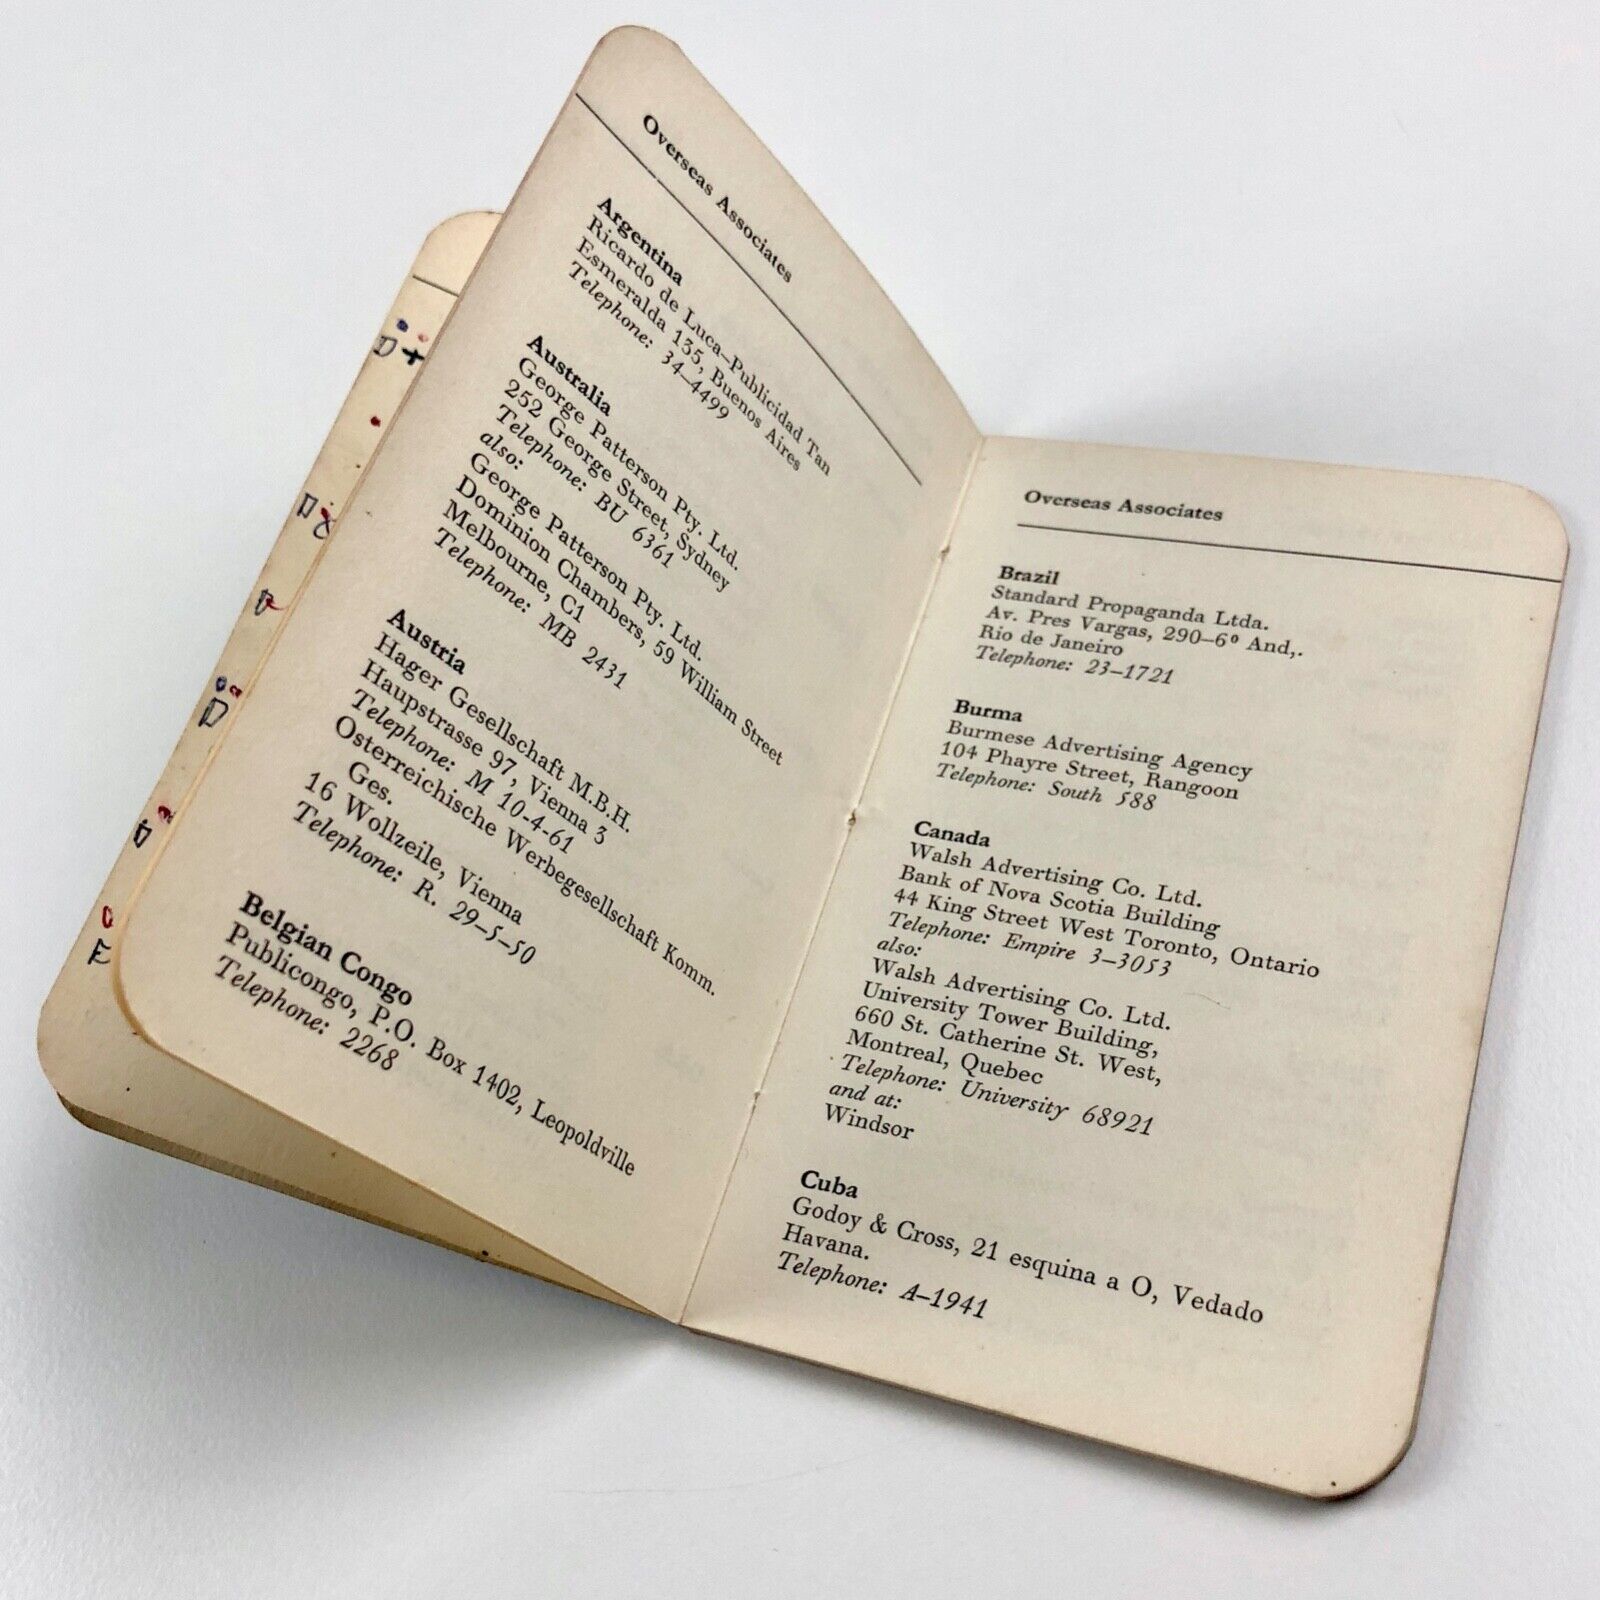 Overseas Associates
Argentina
Ricardo de Luca–Publicidad Tan
Esmeralda 135, Buenos Aires
Telephone: 34–4499
Australia
George Patterson Pty. Ltd.
252 George Street, Sydney
Telephone: BU 6361
also:
George Patterson Pty. Ltd.
Dominion Chambers, 59 William Street
Melbourne, C1
Telephone: MB 2431
Austria
Hager Gesellschaft M.B.H.
Haupstrasse 97, Vienna 3
Telephone: M 10-4-61
Osterreichische Werbegesellschaft Komm.
Ges.
16 Wollzeile, Vienna
Telephone: R. 29–5–50
Belgian Congo
Publicongo, P.O. Box 1402, Leopoldville
Telephone: 2268
Overseas Associates
Brazil
Standard Propaganda Ltda.
Av. Pres Vargas, 290–6º And,.
Rio de Janeiro
Telephone: 23–1721
Burma
Burmese Advertising Agency
104 Phayre Street, Rangoon
Telephone: South 588
Canada
Walsh Advertising Co. Ltd.
Bank of Nova Scotia Building
44 King Street West Toronto, Ontario
Telephone: Empire 3–3053
also:
Walsh Advertising Co. Ltd.
University Tower Building,
660 St. Catherine St. West,
Montreal, Quebec
Telephone: University 68921
and at:
Windsor
Cuba
Godoy & Cross, 21 esquina a O, Vedado
Havana.
Telephone: A–1941